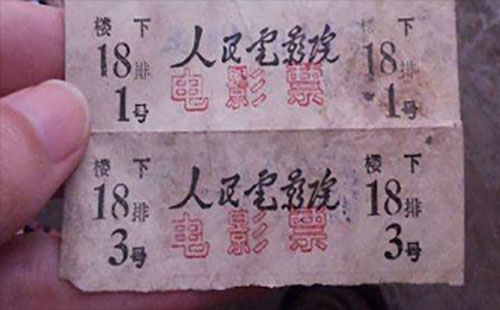 楼下
18排
1号
人民電影院
电影票
楼下
18排
1号
楼下
18排
3号
人民電影院
电影票
楼下
18排
3号